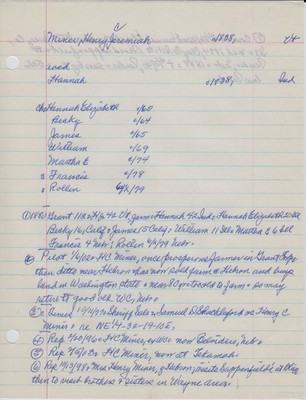 Miner, Henry Jeremiah c/1838, Vt
Hannah c/1838, Ind
ch Hannah Elizabeth c/60
Becky c/64
James c/65
William c/69
Martha E c/74
Francis c/78
Rollin 6/4/79
① 1880 Grant 42 Vt, farm = Hannah 42 Ind = Hannah Elizabeth 20 Ill
Becky 16, Calif = James 15 Calif = William 11 Ill = Martha E 6 Ill
Francis 2 Nebr; Rollin 6/4/79 Nebr.
② Pilot HC Miner, once prosperous farmer in Grant Twp
then settles near Hebron has now sold farm @ Hebron and buys
land in Washington state = near 80 préfers to farm = so may
return to good old WC, Nebr.
③ Sheriff sale = Samuel D Shackleford vs Henry C
Minis = re NE/4-32-19-12E,
④ Rep 4/20/96 = HC Miner, ex WC = now Belvidere, Nebr.
⑤ Rep HC Miner, now at Tekamah
⑥ Rep 9/13/98 = Mrs Henry Miner, of Hebron, visits
then to visit brothers & sisters in Wayne area.